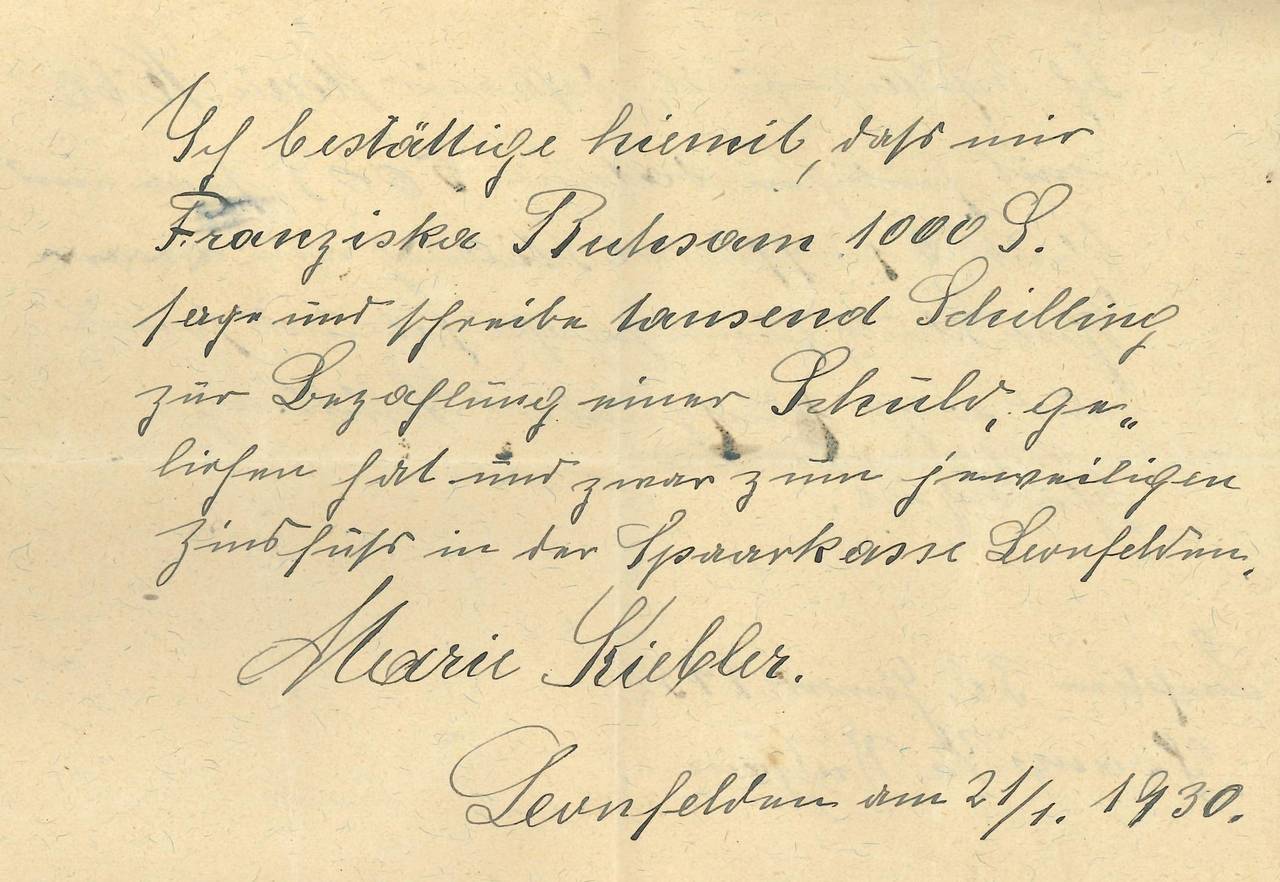 Ich bestättige hiemit, dass mir
Franziska Ruhsam 1000 S.
sage und schreibe tausend Schilling
zur Bezahlung einer Schuld, ge„
liehen hat und zwar zum jeweiligen
Zinsfuss in der Spaarkasse Leonfelden.
Marie Kiebler.
Leonfelden am 21/1. 1930.